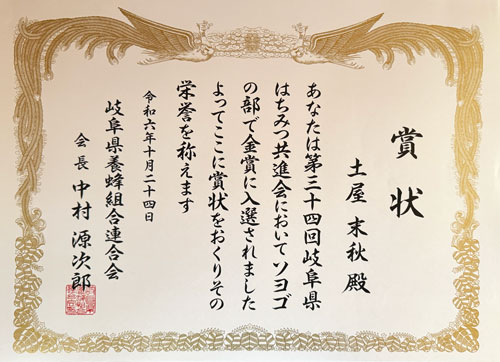 賞状
土屋 末秋 殿
あなたは第三十四回岐阜県
はちみつ共進会においてソヨゴ
の部で金賞に入選されました
よってここに賞状をおくりその
栄誉を称えます
令和六年十月二十四日
岐阜県養蜂組合連合会
会長 中村 源次郎